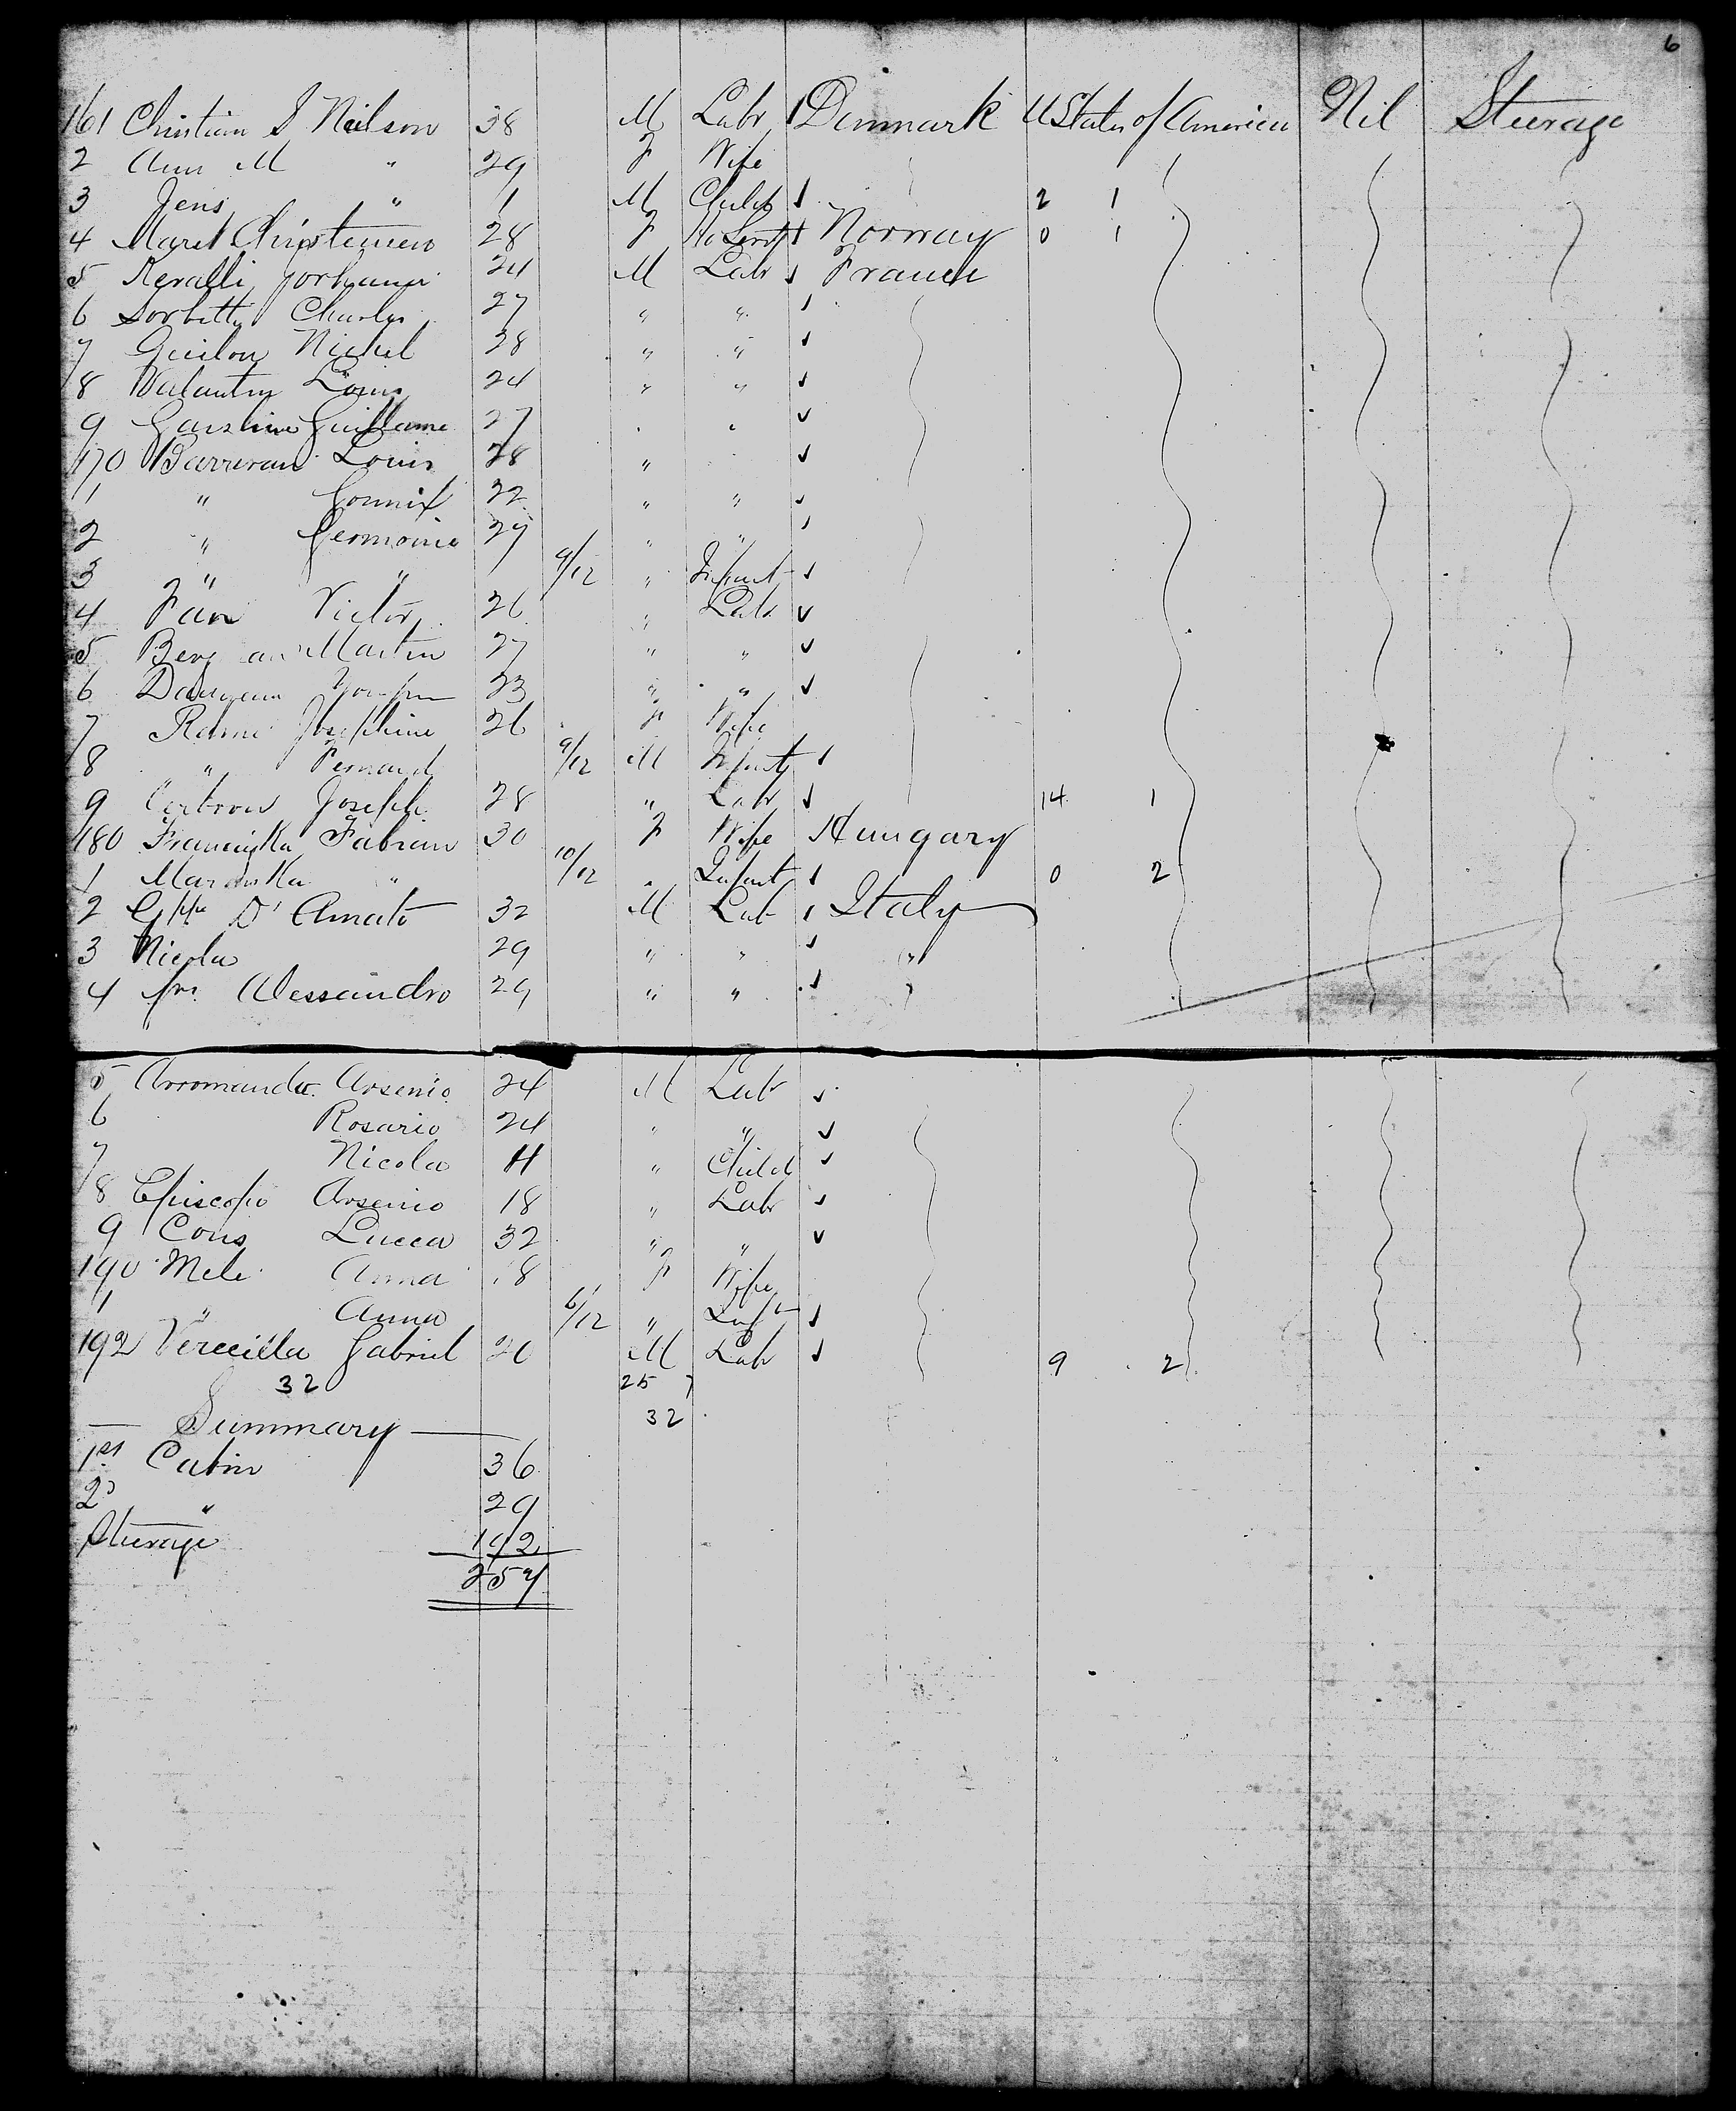 6
161 Christian S Neilson 38 M Labr Denmark U States of America Nil Steerage
2 Ann M " 29 F Wife
3 Jens " 1 M Child 2 1
4 Maret Christensen 28 F Norway 0 1
5 24 M Labr France
6 Charles 27 " "
7 Nickel 28 " "
8 Valantin Louis 24 " "
9 Guillame 27 " "
170 Louis 28 "
1 " 22 " "
2 " Germoine 27 " "
3 " " 9/12 " Infant
4 Victor 26 " Labr
5 Martin 27 " "
6 23 " "
7 Josephine 26 F Wife
8 " Fernand 9/12 M Infant
9 Joseph 28 " Labr 14 1
180 Franciska Fabian 30 F Wife Hungary
1 " 10/12 " Infant 0 2
2 D'Amato 32 M Lab Italy
3 Nicola 29 " " "
4 Alessandro 29 " " "
5 Arsenio 24 M Labr
6 Rosario 24 " "
7 Nicola 11 " Child
8 Episcopo Arsenio 18 " Labr
9 Cons Lucca 32 " "
190 Mele Anna 18 F Wife
1 " Anna 6/12 " Inft
192 Vercilla Gabriel 20 M Labr 9 2
32 25 7
Summary 32
1st Cabin 36
2d " 29
Steerage 192
257